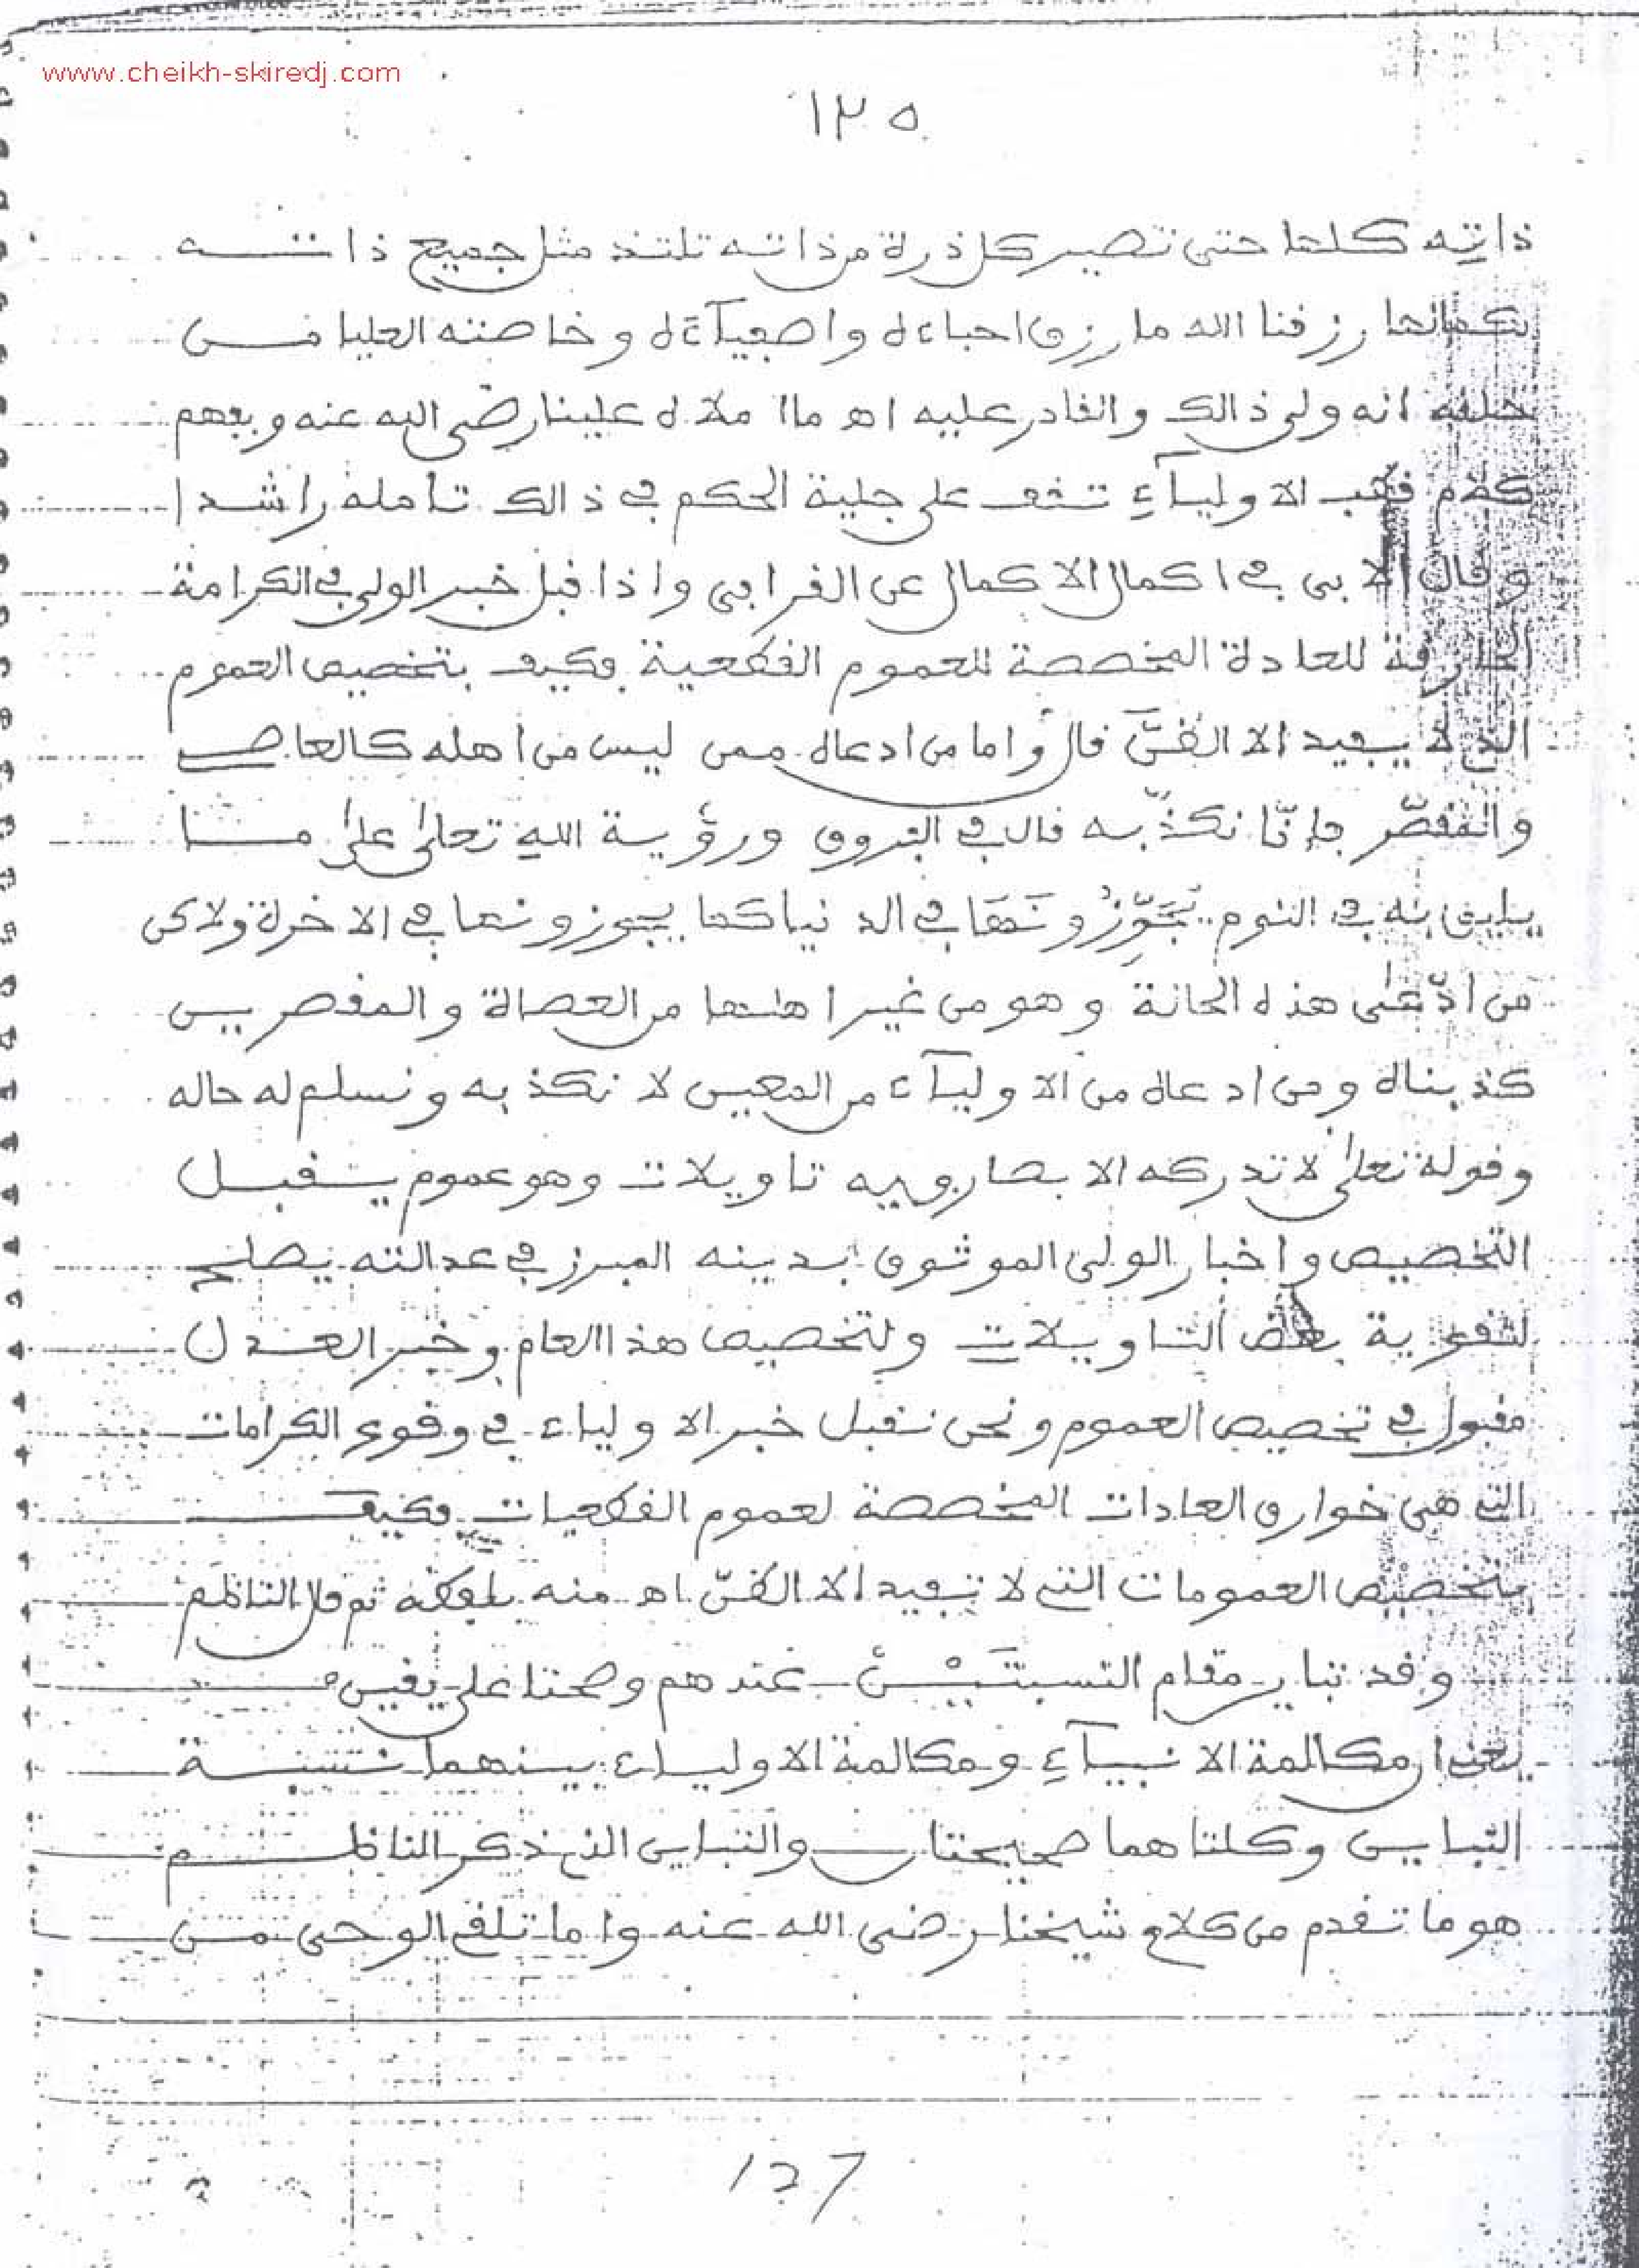 www.cheikh-skiredj.com
١٢٥
ذاته كلها حتى تصير كل ذرة من ذاته تلتذ مثل جميع ذاته
بكمالها رزقنا الله ما رزق احباءه واصفيآءه وخاصته العليا من
خلقه انه ولي ذالك والقادر عليه اهـ ما املاه علينا رضي الله عنه وبعهم
كلام قطب الاوليآء تقف على جلية الحكم في ذالك تامله راشدا
وقال الابي في اكمال الاكمال عن القرافي واذا قبل خبر الولي في الكرامة
الخارقة للعادة المخصصة للعموم القطعية فكيف بتخصيص العموم
الذي لا يفيد الا الظنَّ قال واما من ادعاه ممن ليس من اهله كالعاصي
والمقصّر فإنّا نكذّبه قال في الفروق ورؤية الله تعلى على ما
يليق به في النوم يُجَوِّزُونَهَا في الدنيا كما يجوزونها في الاخرة ولاكن
من ادّعى هذه الحالة وهو من غير اهلها من العصاة والمقصرين
كذبناه ومن ادعاه من الاوليآء من المتقين لا نكذبه ونسلم له حاله
وقوله تعلى لا تدركه الابصار فيه تاويلات وهو عموم يقبل
التخصيص واخبار الولي الموثوق بدينه المبرز في عدالته يصلح
لتقوية بعض التاويلات ولتخصيص هذا العام وخبر العدل
مقبول في تخصيص العموم ونحن نقبل خبر الاولياء في وقوع الكرامات
التي هي خوارق العادات المخصصة لعموم القطعيات فكيف
بتخصيص العمومات التي لا تفيد الا الظنّ اهـ منه بلفظه ثم قال الناظم
وقد تباين مقام النسبتَيْنْ عندهم وصحتا على يقين
يعني ان مكالمة الانبيآء ومكالمة الاولياء بينهما نسبة
التباين وكلتاهما صحيحتان والتباين الذي ذكر الناظم
هو ما تقدم من كلام شيخنا رضي الله عنه واما تلقي الوحي من
127